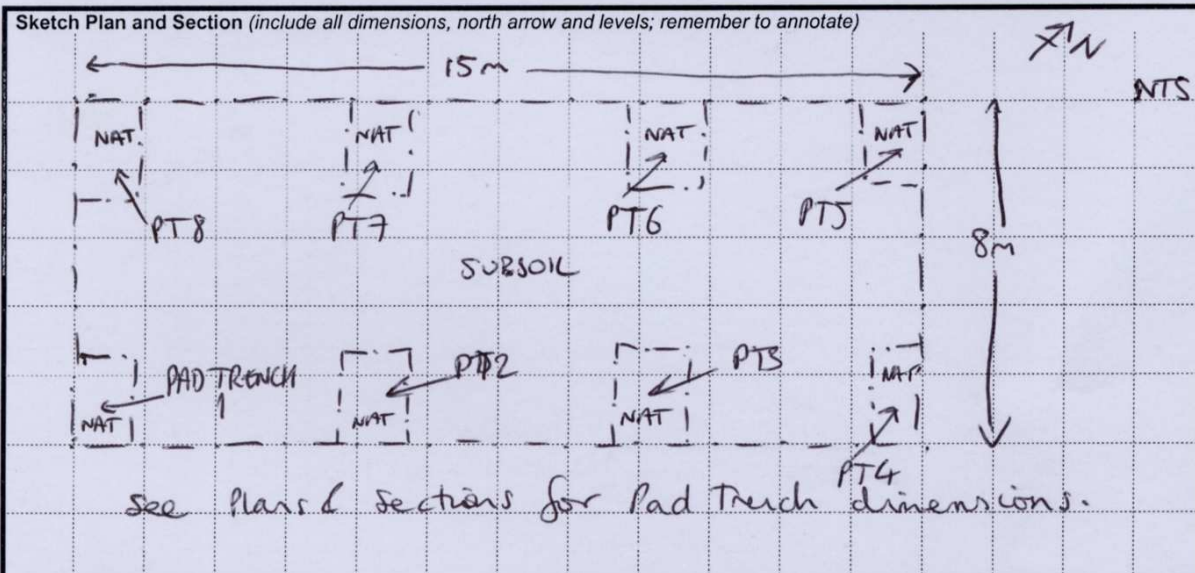 Sketch Plan and Section (include all dimensions, north arrow and levels; remember to annotate)
N
15m
NTS
NAT
NAT
NAT
NAT
PT8
PT7
PT6
PT5
8m
SUBSOIL
PAD TRENCH
1
PT2
PT3
NAT
NAT
NAT
NAT
PT4
See Plans & Sections for Pad Trench dimensions.